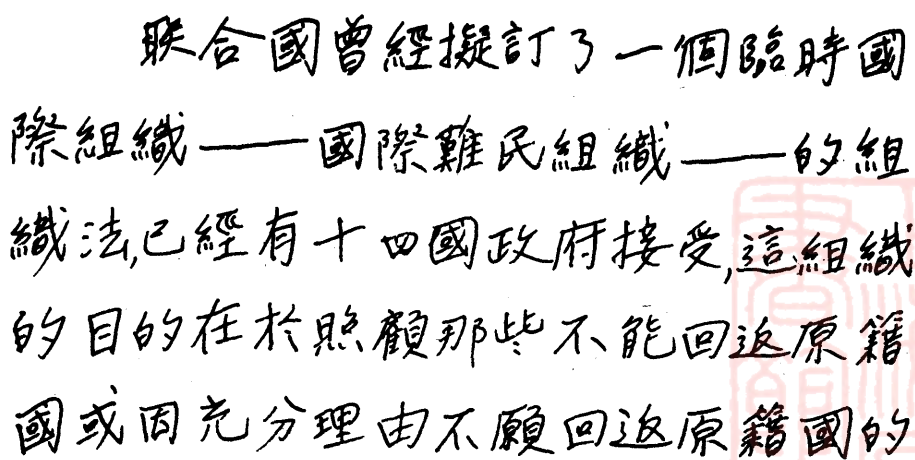 聯合國曾經擬訂了一個臨時國
際組織——國際難民組織——的組
織法,已經有十四國政府接受,這組織
的目的在於照顧那些不能回返原籍
國或因充分理由不願回返原籍國的